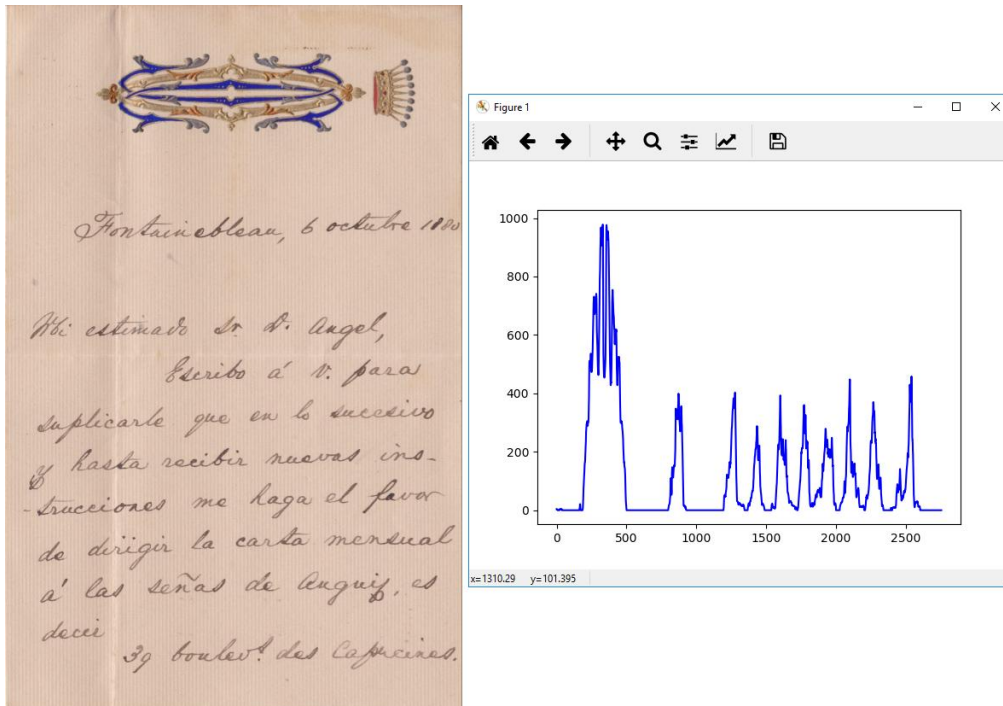 Fontainebleau, 6 octubre 1880
Mi estimado Sr. D. Angel,
Escribo á V. para
suplicarle que en lo sucesivo
y hasta recibir nuevas ins-
-trucciones me haga el favor
de dirigir la carta mensual
á las señas de Anguiz, es
decir
39 boulevt. des Capucines.
Figure 1
1000
800
600
400
200
0
0 500 1000 1500 2000 2500
x=1310.29 y=101.395